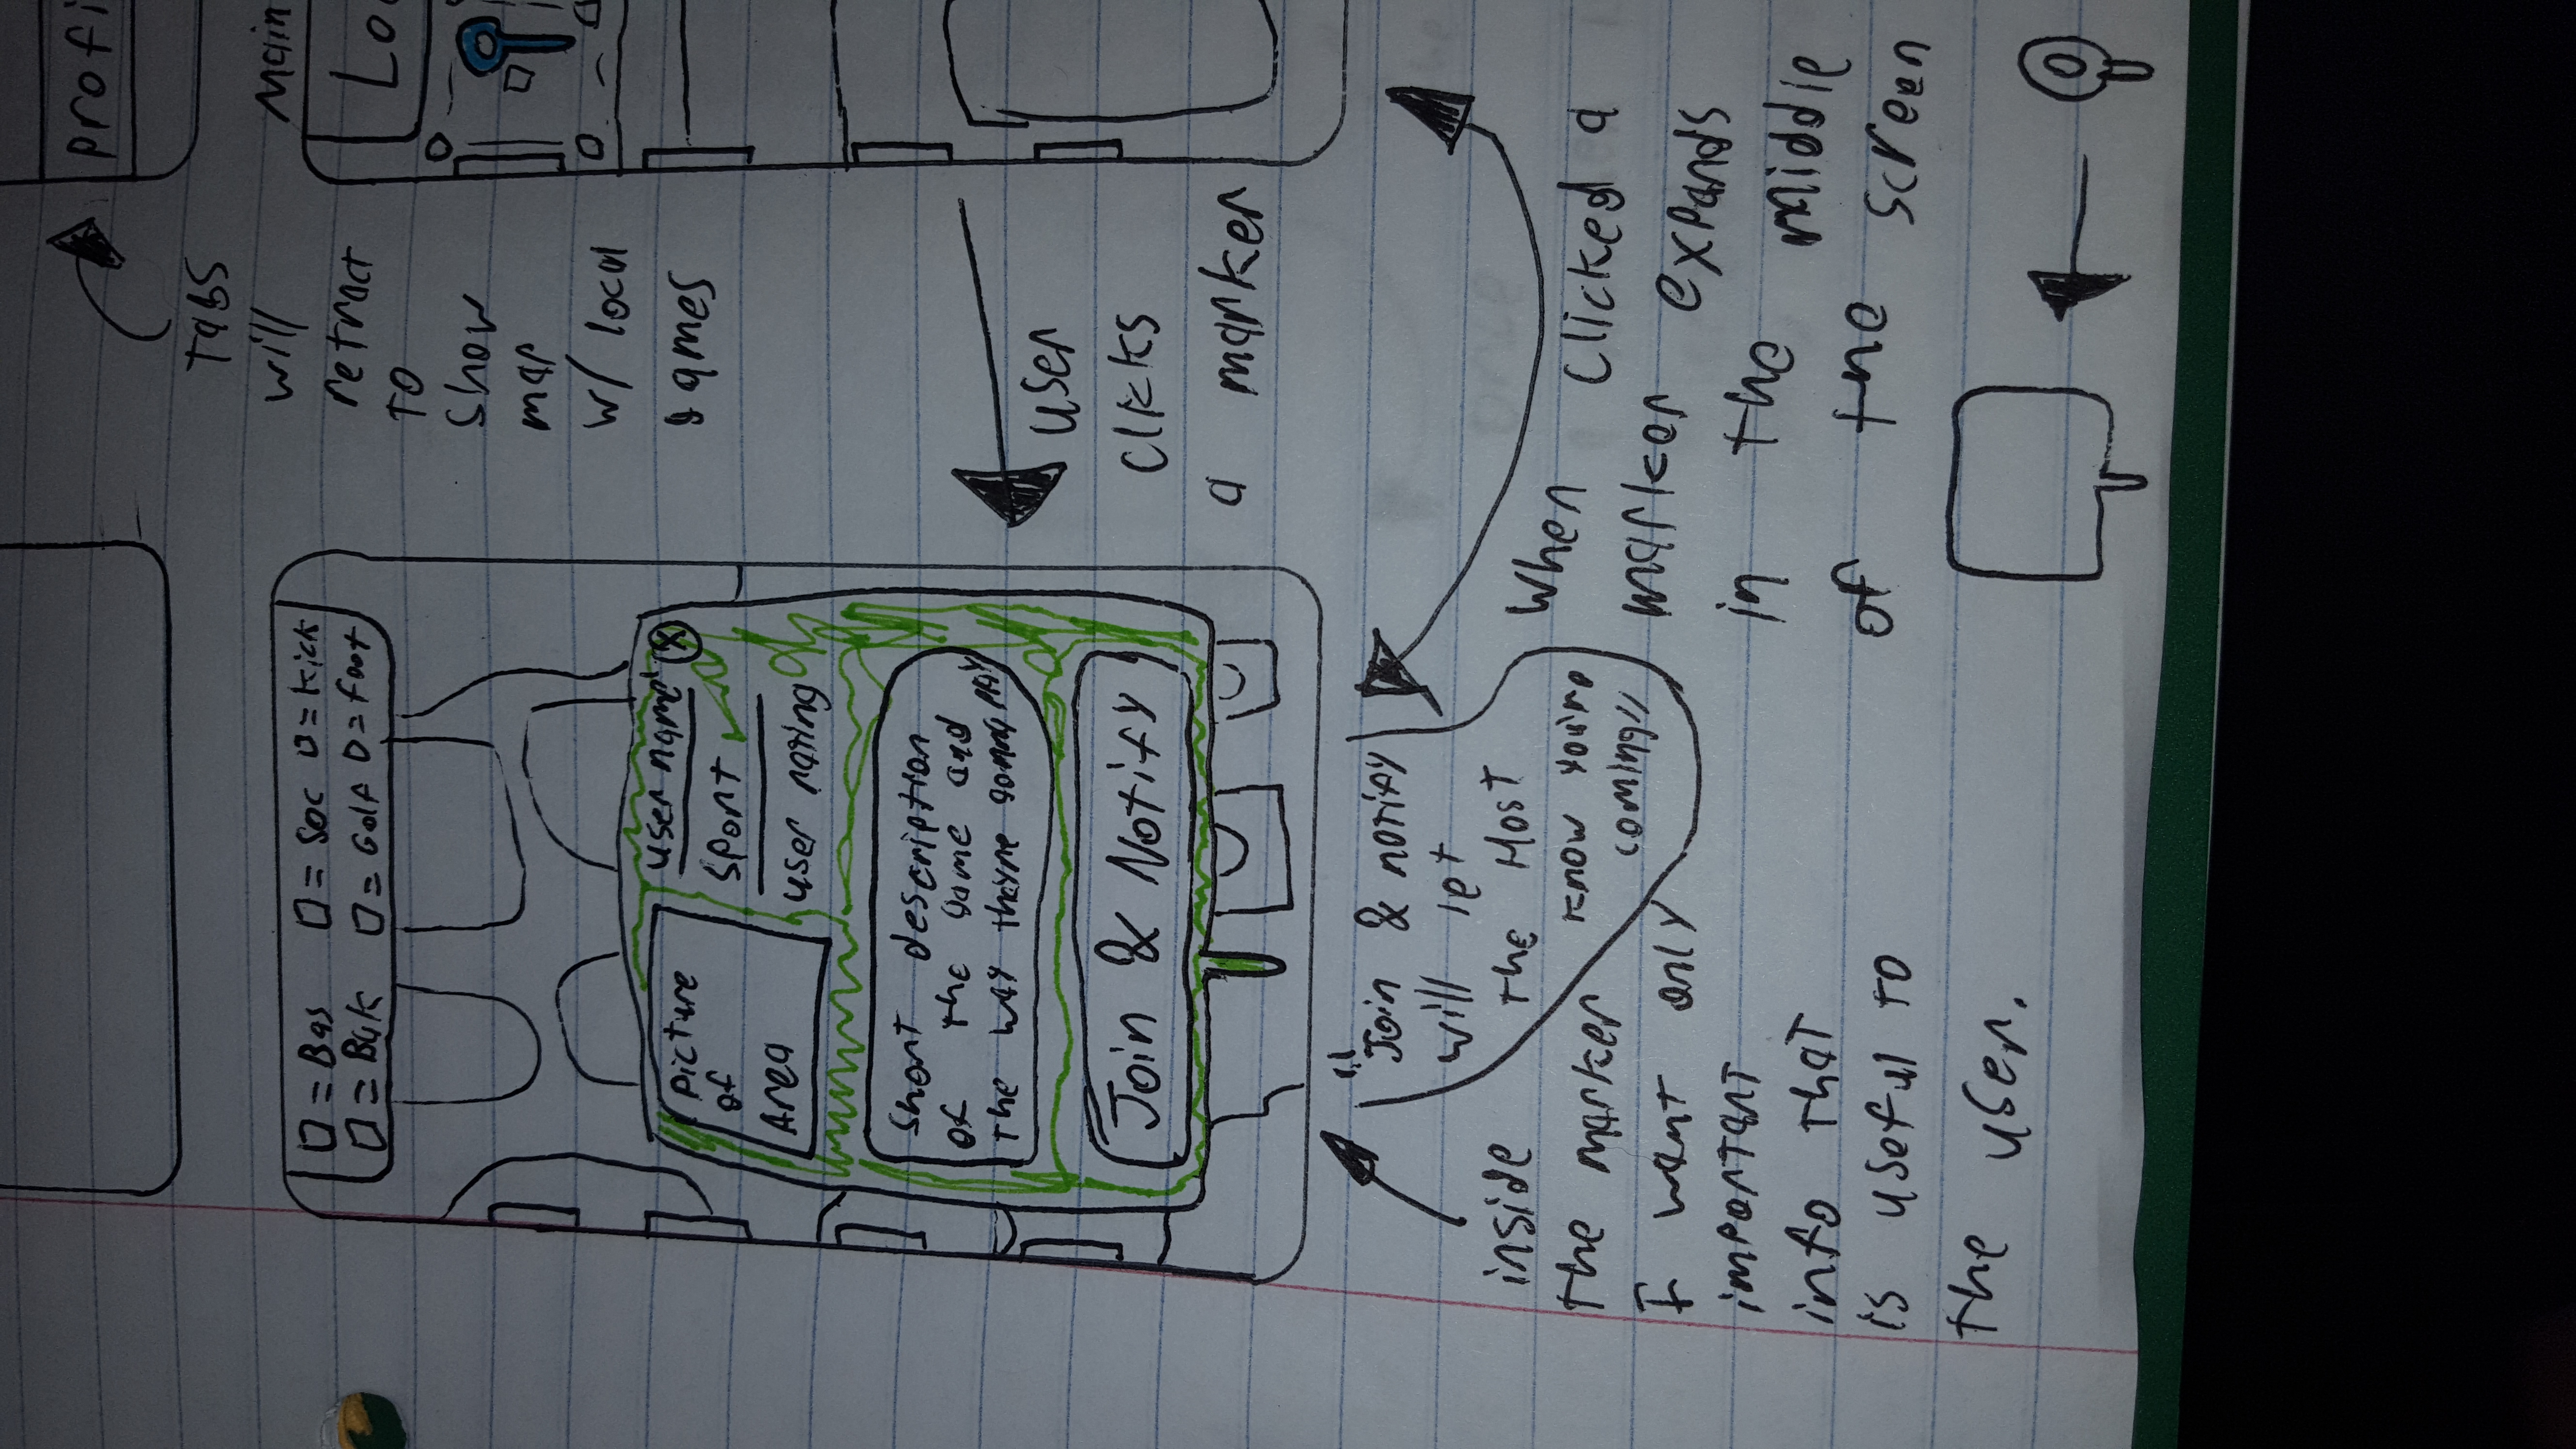 profi
Tabs
will
retract
to
show
map
w/ local
games
Main
Lo
= Bas = Soc = Kick
= Bak = Golf = foot
picture
of
Area
user name
X
sport
user rating
Short description
of the game and
the way they're gonna play
Join & Notify
user
clicks
a marker
"Join & notify
will let
the Host
know you're
coming"
inside
the marker
I want only
important
info that
is useful to
the user.
When clicked a
marker expands
in the middle
of the screen